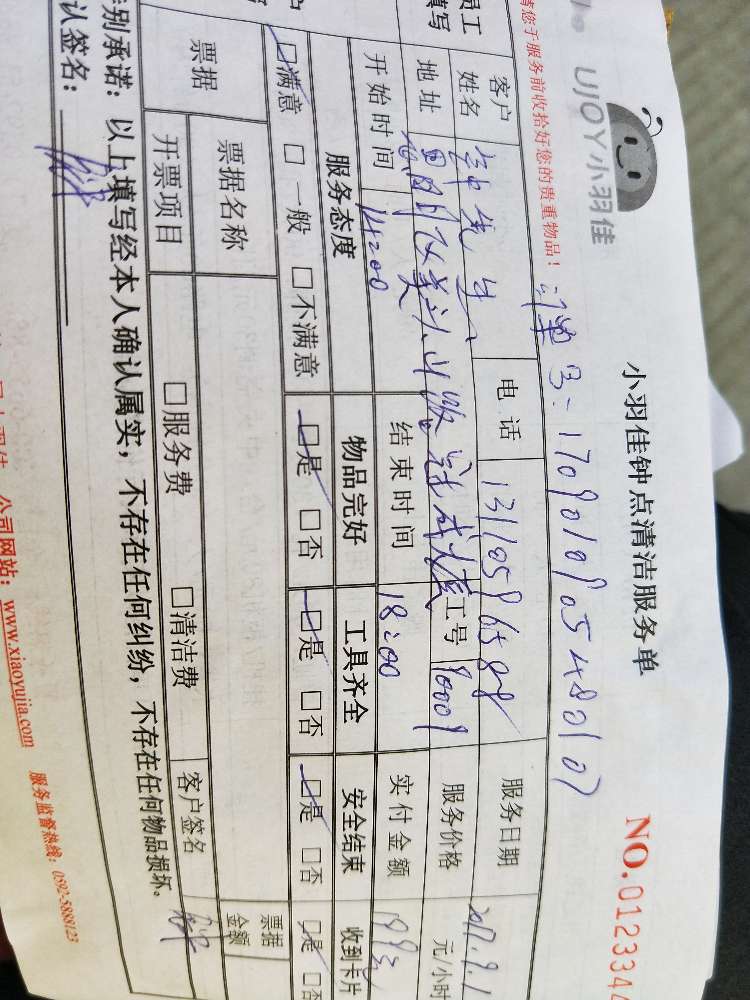 UJOY小羽佳
小羽佳钟点清洁服务单
NO.0123344
请您于服务前收拾好您的贵重物品！
单号:170901090548010
员工
填写
客户
姓名
先生
电话
服务日期
2017.9.1
地址
工号
90009
服务价格
元/小时
开始时间
14:00
结束时间
18:00
实付金额
服务态度
物品完好
工具齐全
安全结束
收到卡片
满意 □一般 □不满意
是 □否
是 □否
是 □否
□是 □否
票据
票据名称
票据
金额
开票项目
□服务费 □清洁费
客户签名
别承诺：以上填写经本人确认属实，不存在任何纠纷，不存在任何物品损坏。
认签名：
服务监督热线：0592-5888123
公司网站：www.xiaoyujia.com